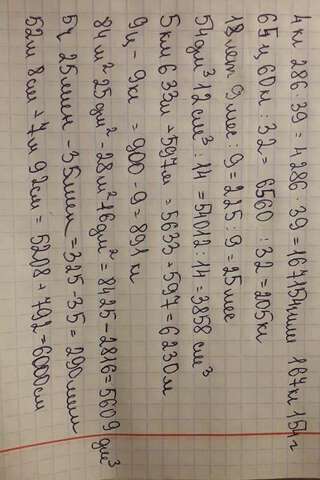 4 кг 286 : 39 = 4286 · 39 = 167154 или 167кг 154 г
65 ц 60 кг : 32 = 6560 : 32 = 205 кг
18 лет 9 мес : 9 = 225 : 9 = 25 мес
54 дм³ 12 см³ : 14 = 54012 : 14 = 3858 см³
5 км 633 м + 597 м = 5633 + 597 = 6230 м
9 ц - 9 кг = 900 - 9 = 891 кг
84 м² 25 дм² - 28 м² 16 дм² = 8425 - 2816 = 5609 дм³
5 ч 25 мин - 35 мин = 325 - 35 = 290 мин
52 м 8 см + 7 м 92 см = 5208 + 792 = 6000 см